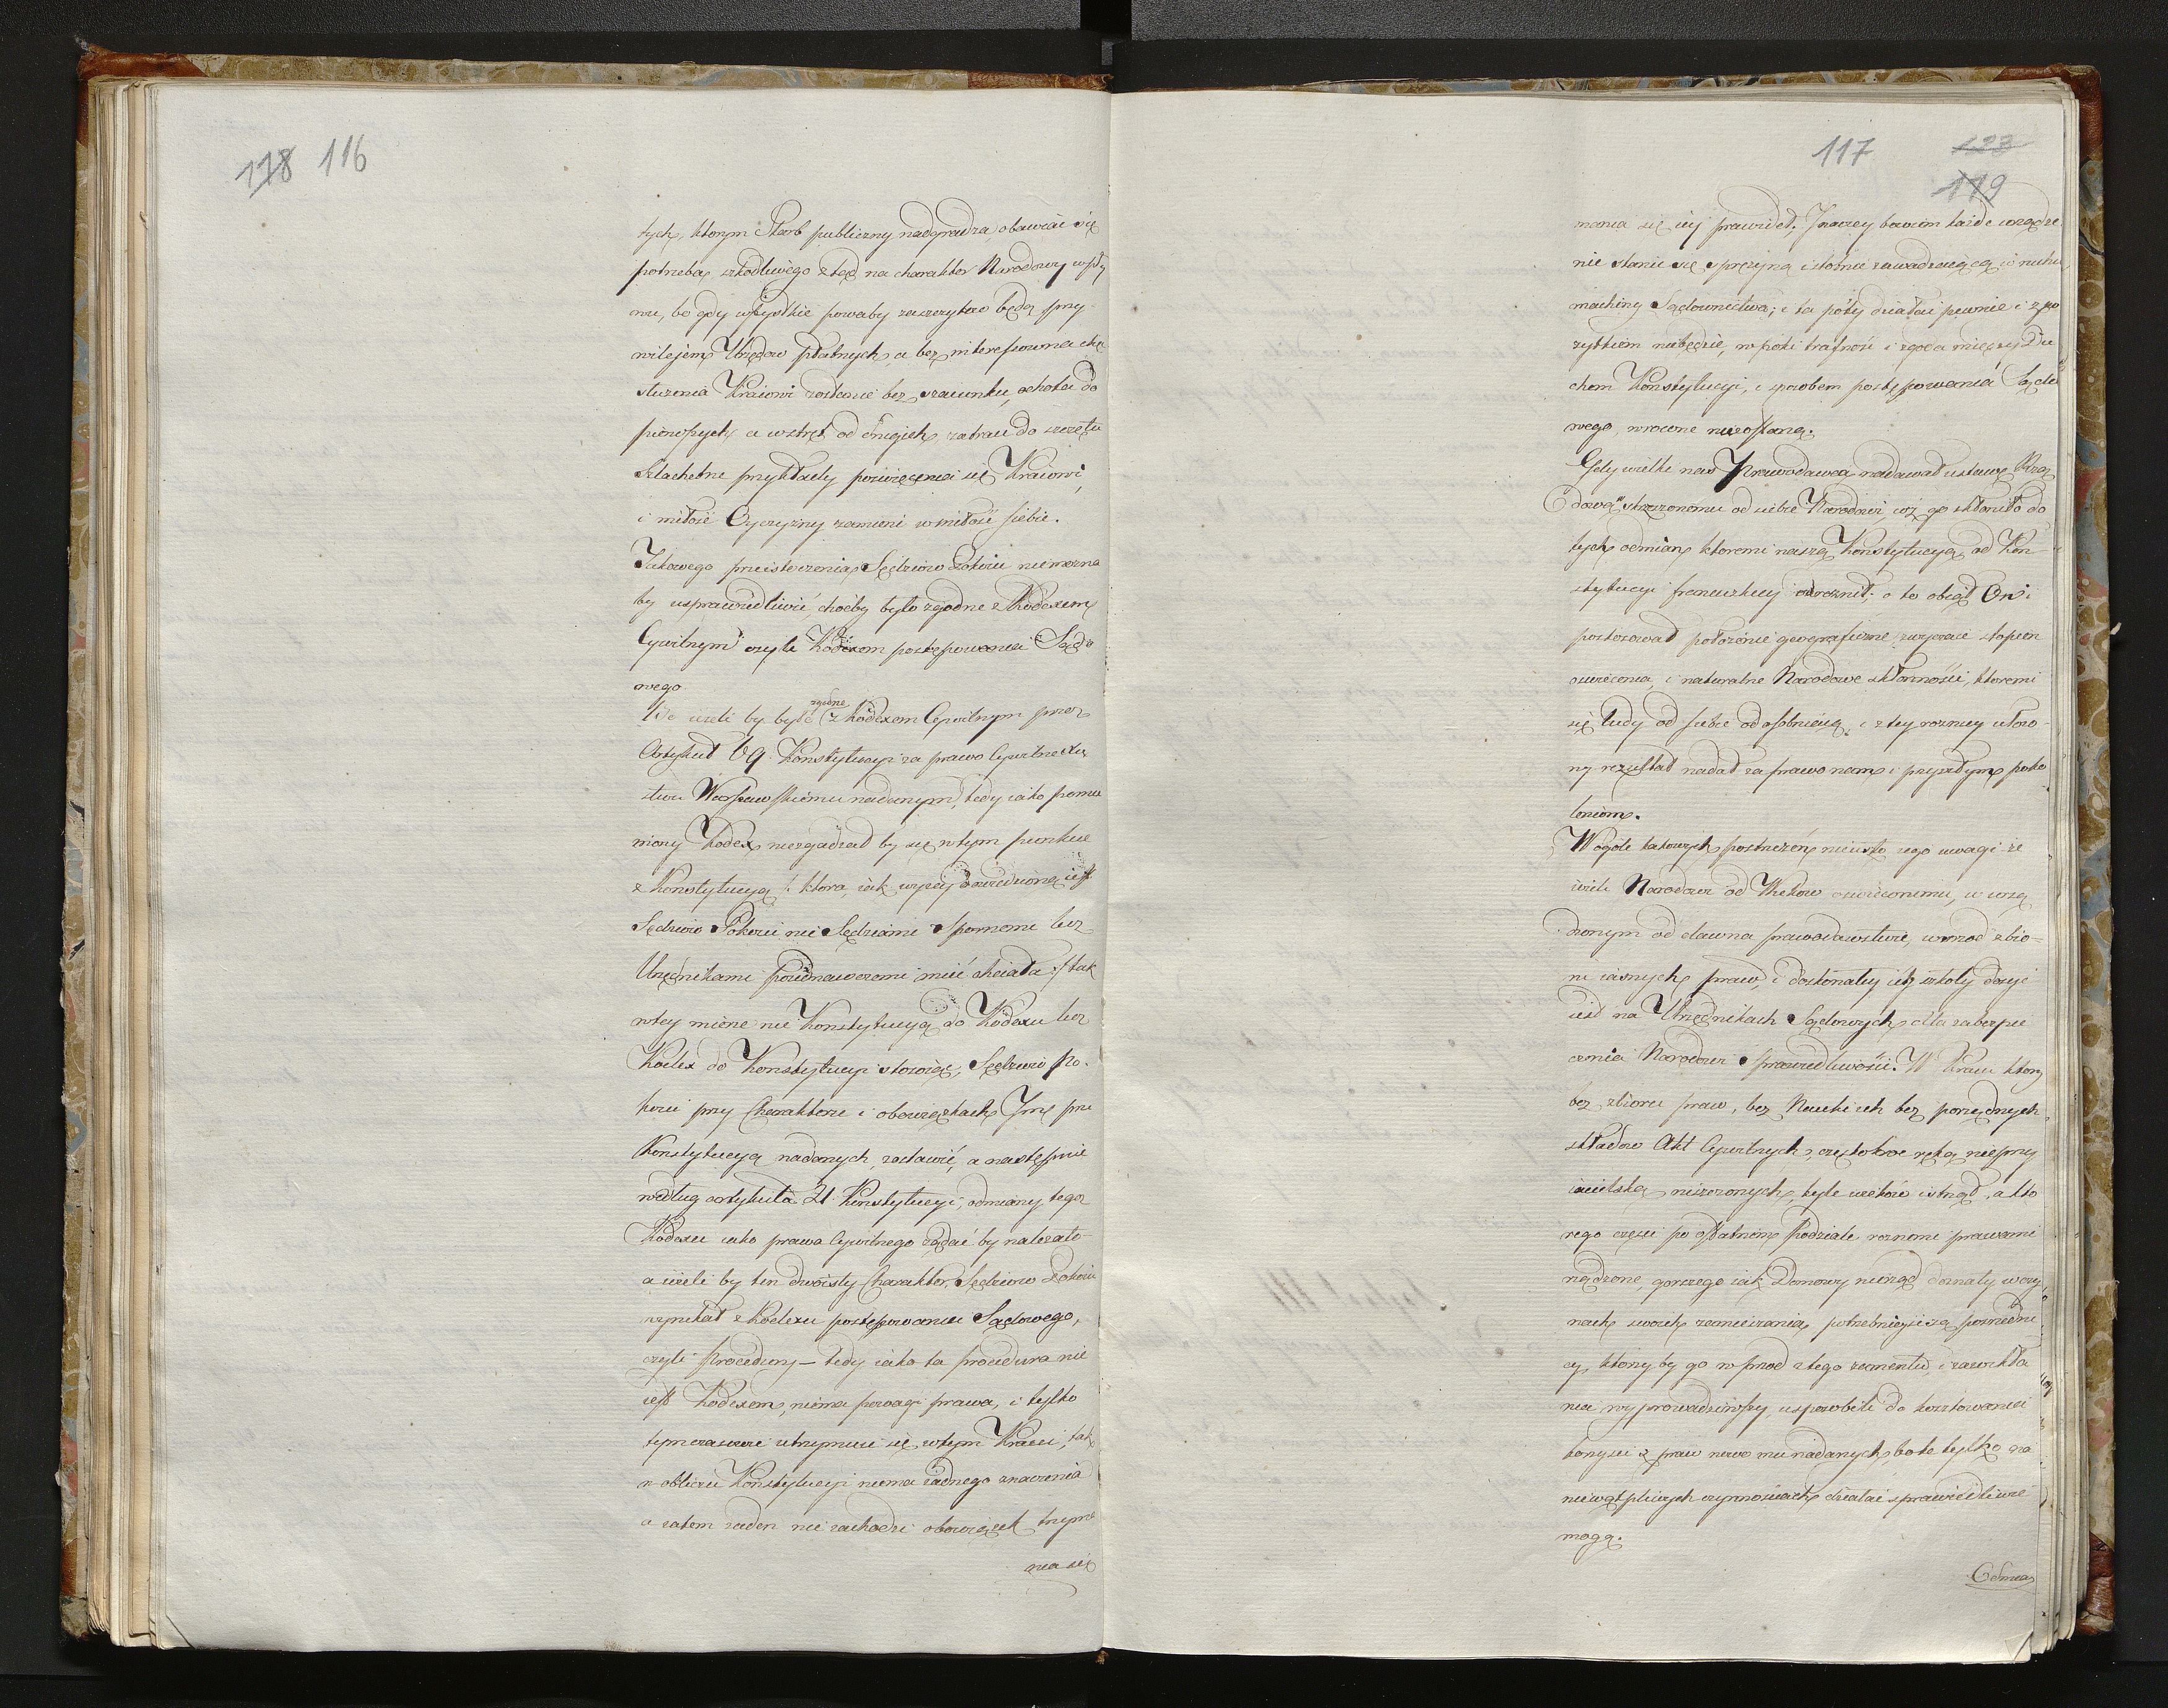 118 116
tych, ktorym Skarb publiczny nadgradza, obawiać się
potrzeba, szkodliwego ztąd na charakter Narodowy wpły
wu, bo gdy wszystkie powaby zaszczytów będą przy
wilejem Urzędow płatnych, a bez interessowna chęć
służenia Kraiowi zostanie bez szacunku, ochota do
pierwszych a wstręt od drugich, zatraci do szczętu
Szlachetne przykłady poświęcenia się Kraiowi,
i miłość Oyczyzny zamieni w miłość siebie.
Takowego przeistoczenia Sędziow Pokoiu niemożna
by usprawiedliwić, choćby było zgodne z Kodexem
Cywilnym czyli Kodexem postępowania Sądo
wego
bo ieżeli by było zgodne z Kodexem Cywilnym przez
Artykuł 69 Konstytucyi za prawo Cywilne Xię
stwu Warszawskiemu nadanym, tedy iako pomie
niony Kodex niezgadzał by się w tym punkcie
z Konstytucyą /: ktora, iak wyżey dowiedziono iest
Sędziow Pokoiu nie Sędziami Spornemi lecz
Urzędnikami Poiednawczemi mieć chciała :/ tak
w tey mierze nie Konstytucyą do Kodexu lecz
Kodex do Konstytucyi stosuiąc, Sędziow Po-
koiu przy Charakterze i obowiązkach Im prze
Konstytucyą nadanych, zostawić, a następnie
według artykułu 21 Konstytucyi, odmiany tego
Kodexu iako prawa Cywilnego żądać by należało-
a ieżeli by ten dwoisty Charakter Sędziow Pokoiu
wynikał z Kodexu postępowania Sądowego,
czyli Procedury – tedy iako ta procedura nie
iest Kodexem, niema powagi prawa, i tylko
tymczasowie utrzymuie się w tym Kraiu, tak
w obliczu Konstytucyi niema żadnego znaczenia
a zatem żaden nie zachodzi obowiązek trzyma
nia się
117 123
119
mania się iey prawideł. Inaczey bowiem każde urządze
nie stanie się sprężyną istotnie zawadzaiącą w ruchu
machiny Sądownictwa; i ta póty działać pewnie i z po
żytkiem niebędzie, w poki trafność i zgoda między Du
chem Konstytucyi, i sposobem postępowania Sądo
wego, w rowne niezostaną.
Gdy wielki nasz Prawodawca nadawał ustawę Rzą
dową wskrzeszonemu od siebie Narodowi, coż go skłoniło do
tych odmian ktoremi naszą Konstytucyą od Kon
stytucyi francuzkiey odroznił; o to obiął On i
postosował położenie geograficzne, zwyczaie stopień
oświecenia, i naturalne Narodowe skłonności, ktoremi
się ludy od siebie odosobniaią, i z tey rozney ułożo-
ny rezultat nadał za prawo nam i przyszłym poko
leniom.
W ogole takowych postrzeżeń nieuszło iego uwagi że
ieżeli Narodowi od Wiekow oświeconemu, w urzą
dzonym od dawna prawodawstwie, wśrzod zbio-
ru iasnych praw, i doskonałey ich szkoły dosyć
iest na Urzędnikach Sądowych dla zabezpie
czenia Narodowi sprawiedliwości. W Kraiu ktory
bez zbioru praw, bez Nauki ich bez porządnych
składow Akt Cywilnych, częstokroć ręką nieprzy
iacielską niszczonych, tyle wiekow istniał, a kto
rego części po ostatnim Podziale roznemi prawami
rządzone, gorszego iak Domowy nierząd doznały w czy
nach swoich zamieszania, potrzebnieysi są posrzedni
cy, ktorzy by go w przod z tego zamentu, i zawikła
nia wyprowadziwszy, usposobili do kosztowania
korzyści z praw nowo mu nadanych, bo te tylko na
niewątpliwych czynnościach działać sprawiedliwie
mogą.
Odmian